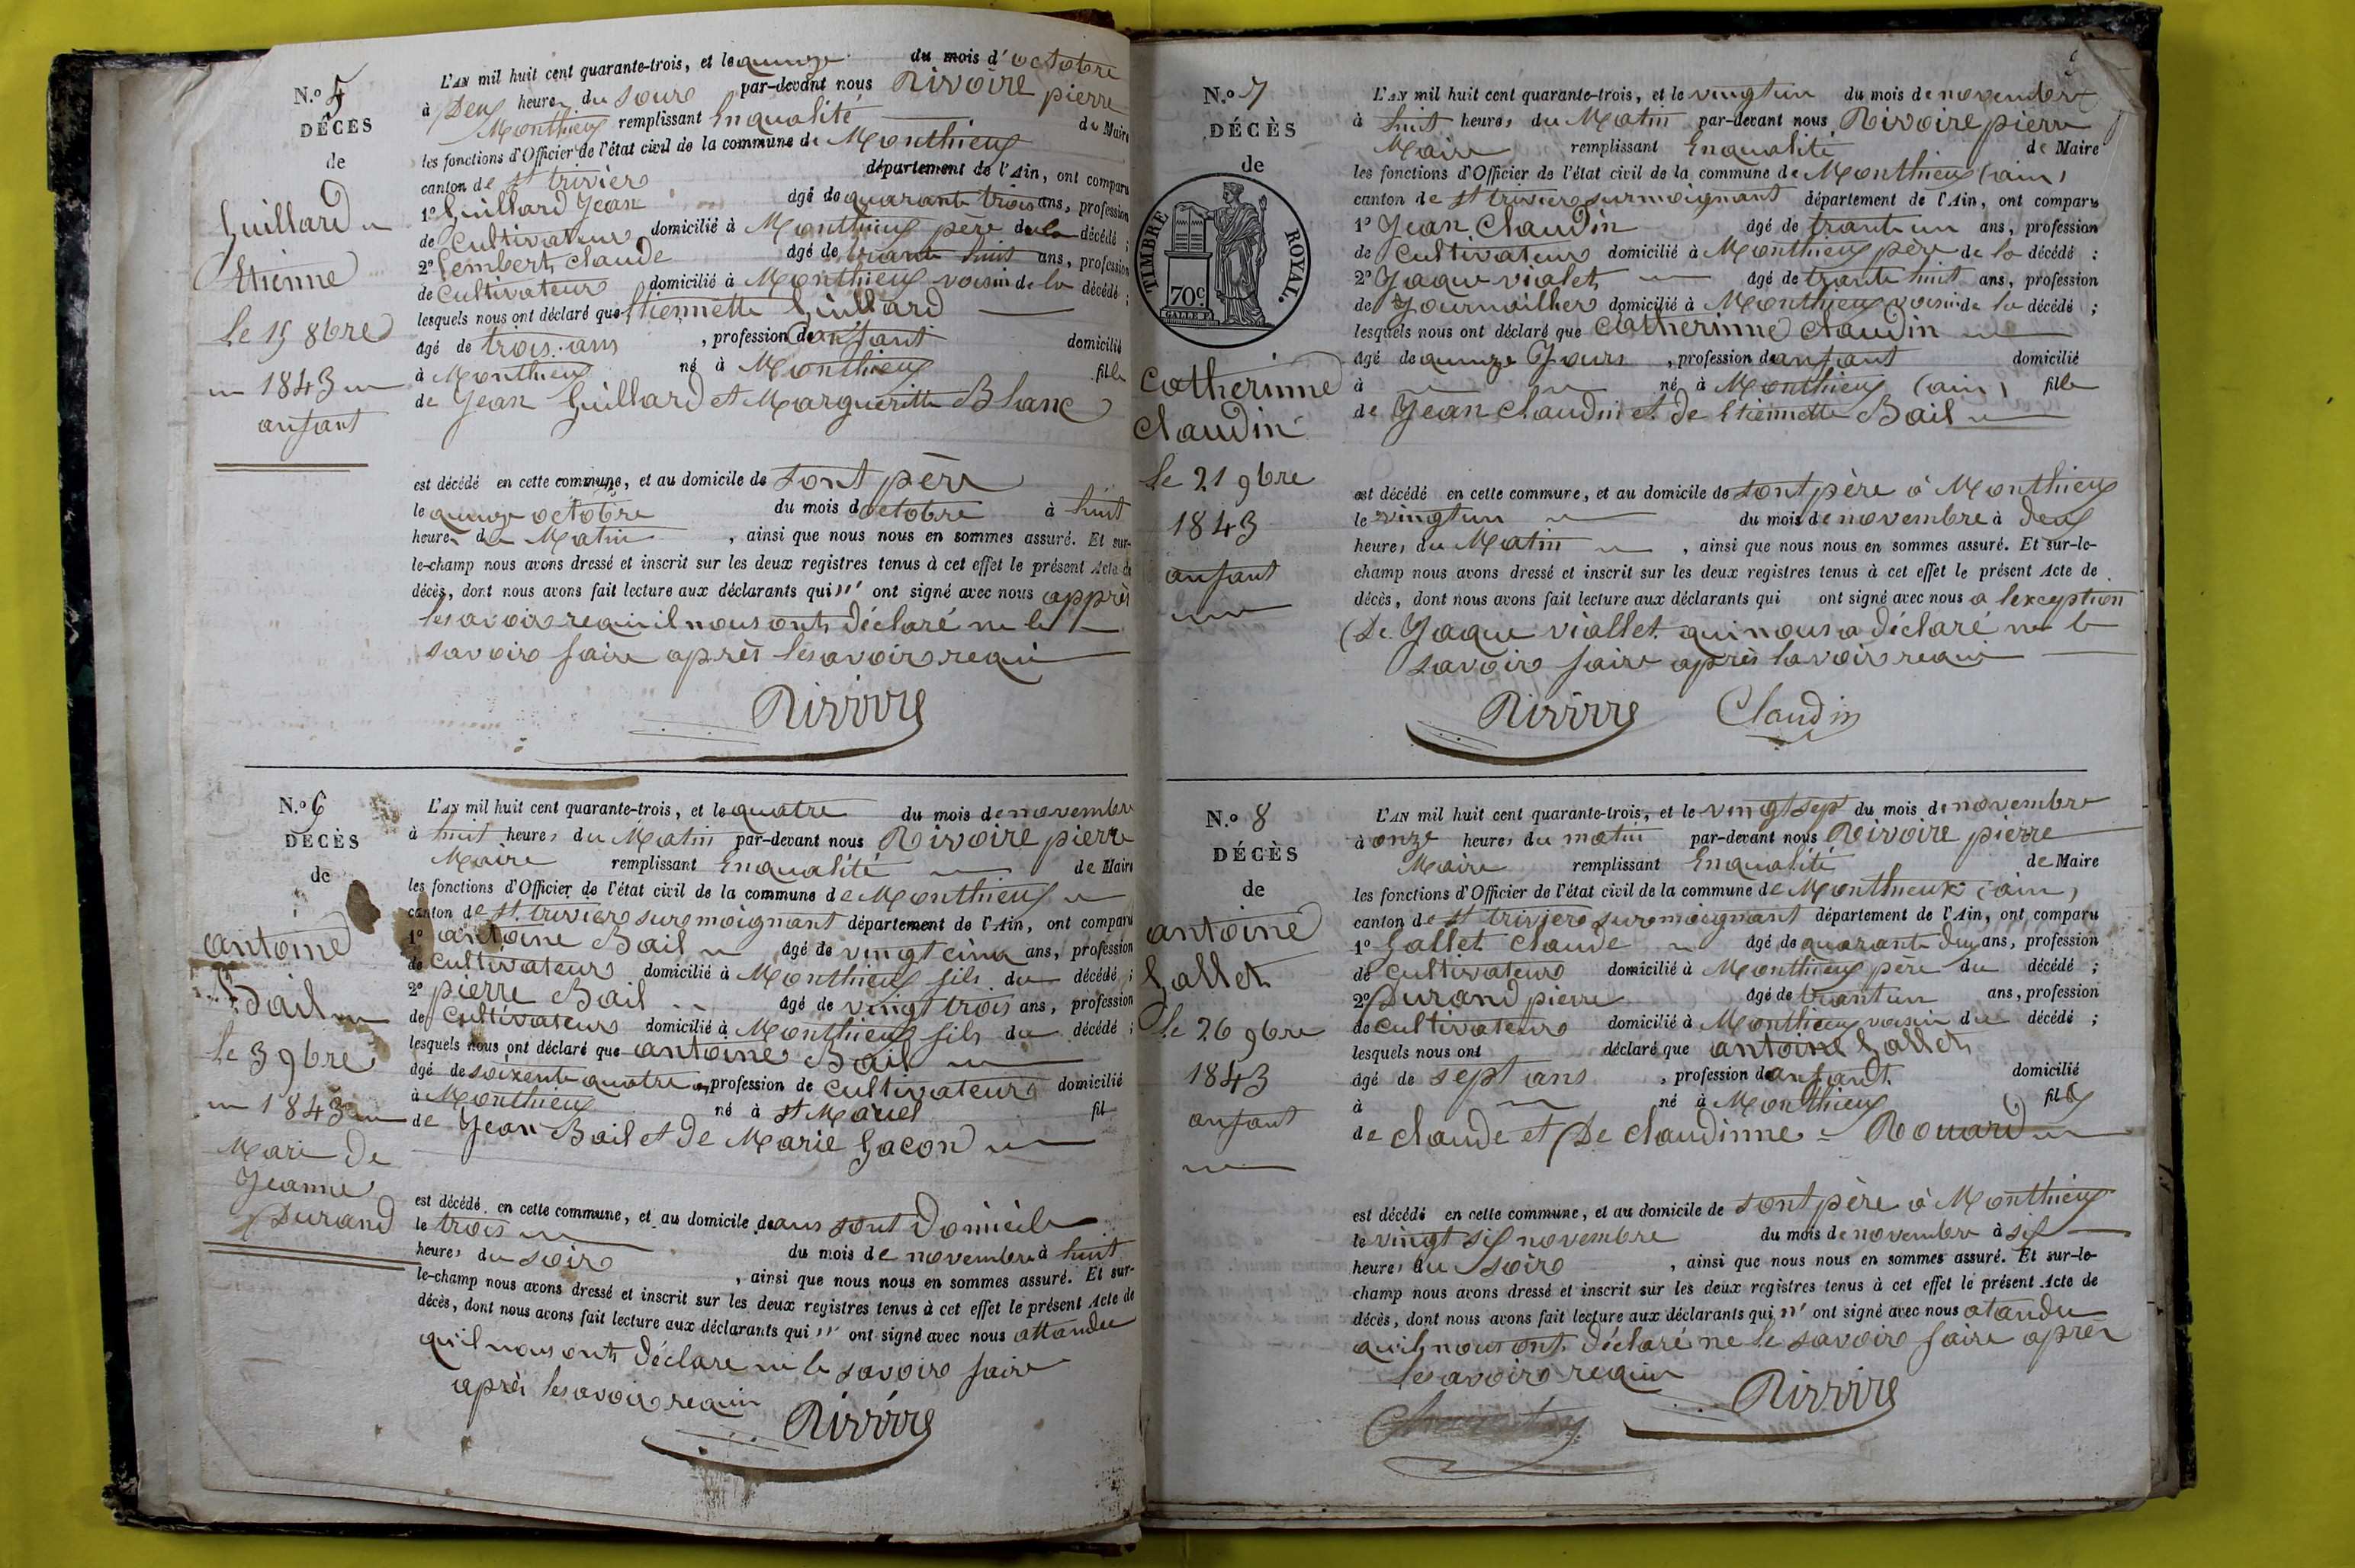 N.º 5
DÉCÈS
de
Guillard
Etienne
le 15 8bre
1843
anfant
L'AN mil huit cent quarante-trois, et le quinze du mois d'octobre
à Deux heures du soire par-devant nous Rivoire pierre
Monthieux remplissant Enqualité de Maire
les fonctions d'Officier de l'état civil de la commune de Monthieux
canton de st triviers département de l'Ain, ont comparu
1º Guillard Jean âgé de quarante trois ans, profession
de Cultivateur domicilié à Monthieux père de la décédé ;
2º Lembert Claude âgé de trante huit ans, profession
de Cultivateur domicilié à Monthieux voisin de la décédé ;
lesquels nous ont déclaré que Etiennette Guillard
âgé de trois ans , profession d'anfant domicilié
à Monthieux né à Monthieux fille
de Jean Guillard et Margueritte Blanc
est décédé en cette commune, et au domicile de sont père
le quinze octobre du mois d'octobre à huit
heures du Matin , ainsi que nous nous en sommes assuré. Et sur-
le-champ nous avons dressé et inscrit sur les deux registres tenus à cet effet le présent Acte de
décès, dont nous avons fait lecture aux déclarants qui n' ont signé avec nous apprès
les avoir requi il nous onts déclaré ne le
savoir faire après les avoir requi
Rivoire
N.º 6
DÉCÈS
de
antoine
Bail
le 3 9bre
1843
Mari de
Jeanne
Durand
L'AN mil huit cent quarante-trois, et le quatre du mois de novembre
à huit heures du Matin par-devant nous Rivoire pierre
Maire remplissant Enqualité de Maire
les fonctions d'Officier de l'état civil de la commune de Monthieux
canton de st. triviers sur moignant département de l'Ain, ont comparu
1º antoine Bail âgé de vingt cinq ans, profession
de Cultivateur domicilié à Monthieux fils du décédé ;
2º pierre Bail âgé de vingt trois ans, profession
de Cultivateur domicilié à Monthieux fils du décédé ;
lesquels nous ont déclaré que antoine Bail
âgé de soixente quatre ans, profession de cultivateur domicilié
à Monthieux né à st Marcel fil
de Jean Bail et de Marie Gacon
est décédé en cette commune, et au domicile dans sont Domicile
le trois du mois de novembre à huit
heures du soir , ainsi que nous nous en sommes assuré. Et sur-
le-champ nous avons dressé et inscrit sur les deux registres tenus à cet effet le présent Acte de
décès, dont nous avons fait lecture aux déclarants qui n' ont signé avec nous attandu
qu'il nous onts déclare ne le savoir faire
après les avoir requi
Rivoire
N.º 7
DÉCÈS
de
TIMBRE ROYAL.
70c
Catherinne
Claudin
le 21 9bre
1843
anfant
L'AN mil huit cent quarante-trois, et le vingt un du mois de novembre
à huit heures du Matin par-devant nous Rivoire pierre
Maire remplissant Enqualité de Maire
les fonctions d'Officier de l'état civil de la commune de Monthieux (ain)
canton de st triviers sur moignant département de l'Ain, ont comparu
1º Jean Claudin âgé de trante un ans, profession
de Cultivateur domicilié à Monthieux père de la décédé :
2º Jaque vialet âgé de trante huit ans, profession
de Journailher domicilié à Monthieux voisin de la décédé ;
lesquels nous ont déclaré que Catherinne Claudin
âgé de quinze Jours , profession d'anfant domicilié
à né à Monthieux (ain) fille
de Jean Claudin et de Etiennette Bail
est décédé en cette commune, et au domicile de sont père à Monthieux
le vingt un du mois de novembre à deux
heures du Matin , ainsi que nous nous en sommes assuré. Et sur-le-
champ nous avons dressé et inscrit sur les deux registres tenus à cet effet le présent Acte de
décès, dont nous avons fait lecture aux déclarants qui ont signé avec nous a lexception
De Jaque viallet qui nous a déclaré ne le
savoir faire après lavoir requi
Rivoire Claudin
N.º 8
DÉCÈS
de
antoine
Gallet
le 26 9bre
1843
anfant
L'AN mil huit cent quarante-trois, et le vingt sept du mois de novembre
à onze heures du matin par-devant nous Rivoire pierre
Maire remplissant Enqualité de Maire
les fonctions d'Officier de l'état civil de la commune de Monthieux (ain)
canton de st triviers sur moignant département de l'Ain, ont comparu
1º Gallet Claude âgé de quarante deux ans, profession
de Cultivateur domicilié à Monthieux père du décédé ;
2º Durand pierre âgé de trant un ans, profession
de cultivateur domicilié à Monthieux voisin du décédé ;
lesquels nous ont déclaré que antoine Gallet
âgé de sept ans , profession d'anfant domicilié
à né à Monthieux fils
de claude et De claudinne Rouard
est décédé en cette commune, et au domicile de sont père à Monthieux
le vingt six novembre du mois de novembre à six
heures du soir , ainsi que nous nous en sommes assuré. Et sur-le-
champ nous avons dressé et inscrit sur les deux registres tenus à cet effet le présent Acte de
décès, dont nous avons fait lecture aux déclarants qui n' ont signé avec nous atandu
quils nous ont déclaré ne le savoir faire après
les avoir requi
Rivoire